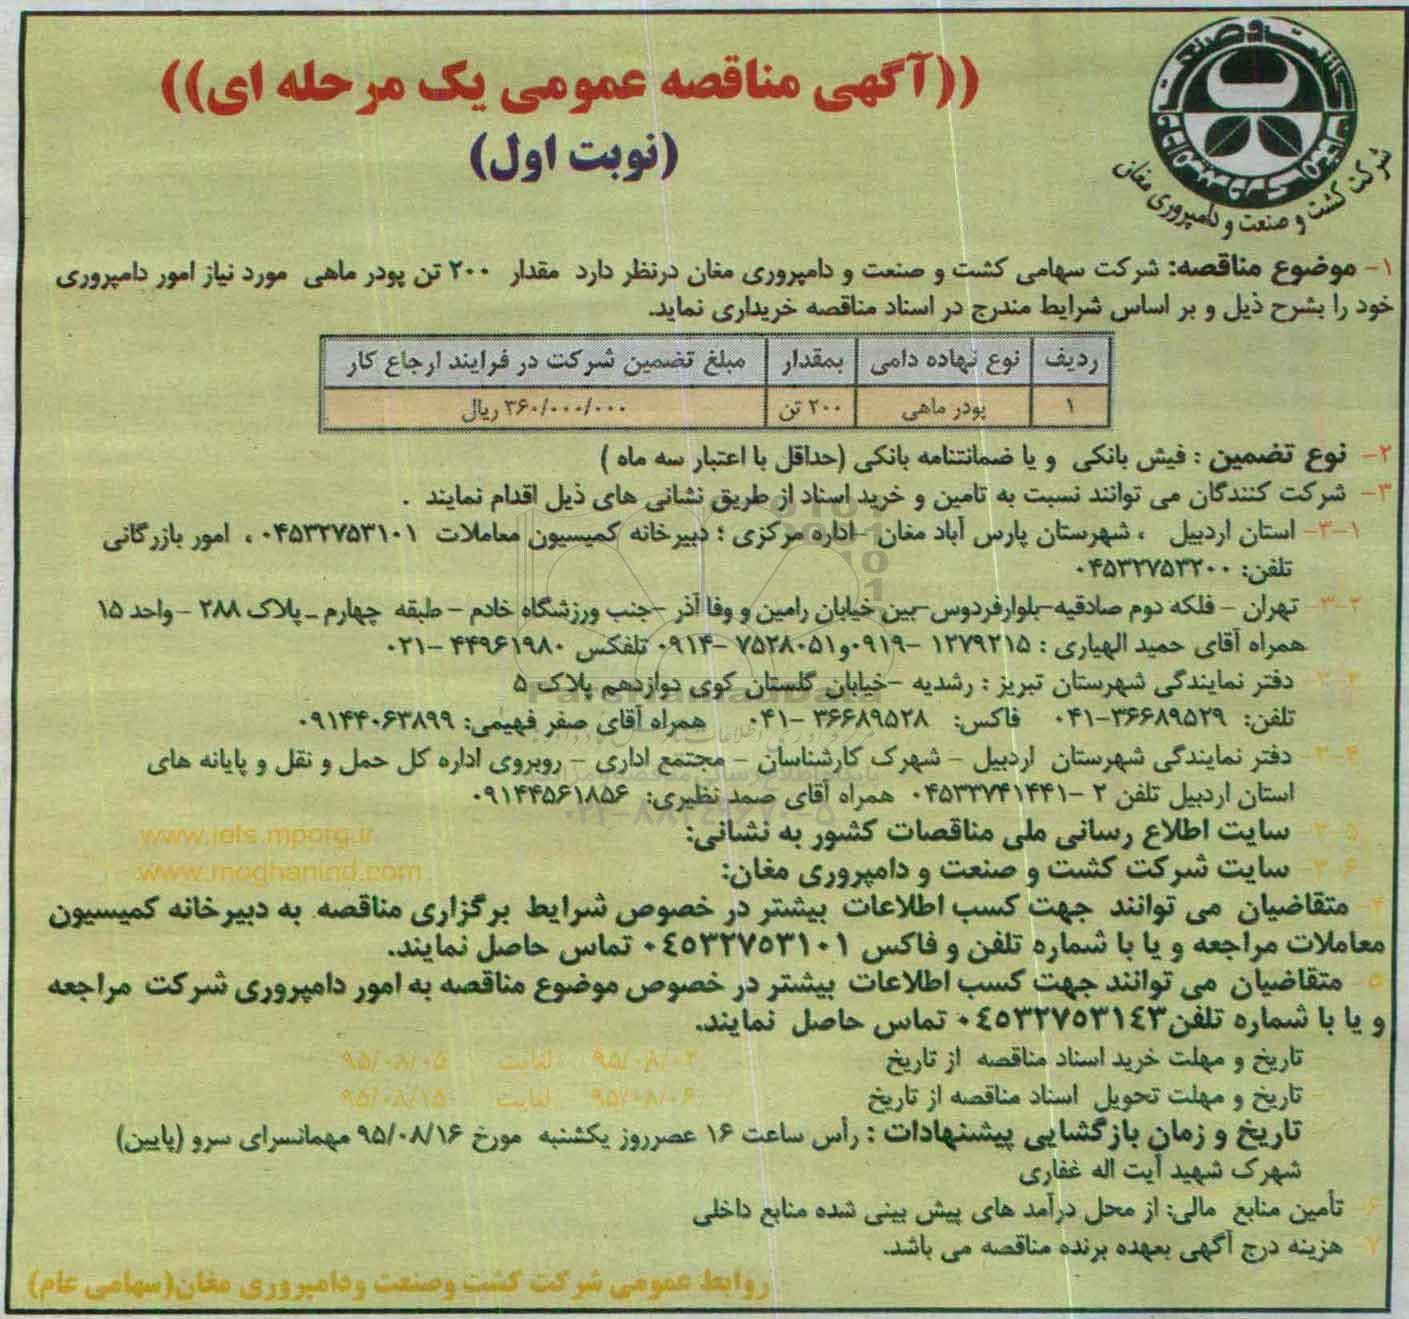 شرکت کشت و صنعت و دامپروری مغان
((آگهی مناقصه عمومی یک مرحله ای))
(نوبت اول)
۱- موضوع مناقصه: شرکت سهامی کشت و صنعت و دامپروری مغان درنظر دارد مقدار ۲۰۰ تن پودر ماهی مورد نیاز امور دامپروری
خود را بشرح ذیل و بر اساس شرایط مندرج در اسناد مناقصه خریداری نماید.
ردیف نوع نهاده دامی بمقدار مبلغ تضمین شرکت در فرایند ارجاع کار
۱ پودر ماهی ۲۰۰ تن ۳۶۰/۰۰۰/۰۰۰ ریال
۲- نوع تضمین : فیش بانکی و یا ضمانتنامه بانکی (حداقل با اعتبار سه ماه )
۳- شرکت کنندگان می توانند نسبت به تامین و خرید اسناد از طریق نشانی های ذیل اقدام نمایند .
۳-۱- استان اردبیل ، شهرستان پارس آباد مغان -اداره مرکزی ؛ دبیرخانه کمیسیون معاملات ۰۴۵۳۲۷۵۳۱۰۱ ، امور بازرگانی
تلفن: ۰۴۵۳۲۷۵۳۲۰۰
۳-۲- تهران - فلکه دوم صادقیه-بلوارفردوس-بین خیابان رامین و وفا آذر -جنب ورزشگاه خادم - طبقه چهارم - پلاک ۲۸۸ -واحد ۱۵
همراه آقای حمید الهیاری : ۱۲۷۹۲۱۵ -۰۹۱۹و۷۵۲۸۰۵۱ -۰۹۱۴ تلفکس ۴۴۹۶۱۹۸۰ -۰۲۱
دفتر نمایندگی شهرستان تبریز : رشدیه -خیابان گلستان کوی دوازدهم پلاک ۵
تلفن: ۳۶۶۸۹۵۲۹-۰۴۱ فاکس: ۳۶۶۸۹۵۲۸ -۰۴۱ همراه آقای صفر فهیمی: ۰۹۱۴۴۰۶۳۸۹۹
۳-۴- دفتر نمایندگی شهرستان اردبیل - شهرک کارشناسان - مجتمع اداری - روبروی اداره کل حمل و نقل و پایانه های
استان اردبیل تلفن ۲ -۰۴۵۳۳۷۴۱۴۴۱ همراه آقای صمد نظیری: ۰۹۱۴۴۵۶۱۸۵۶
۳-۵- سایت اطلاع رسانی ملی مناقصات کشور به نشانی: www.iets.mporg.ir
۳-۶- سایت شرکت کشت و صنعت و دامپروری مغان: www.moghanind.com
۴- متقاضیان می توانند جهت کسب اطلاعات بیشتر در خصوص شرایط برگزاری مناقصه به دبیرخانه کمیسیون
معاملات مراجعه و یا با شماره تلفن و فاکس ۰۴۵۳۲۷۵۳۱۰۱ تماس حاصل نمایند.
۵- متقاضیان می توانند جهت کسب اطلاعات بیشتر در خصوص موضوع مناقصه به امور دامپروری شرکت مراجعه
و یا با شماره تلفن۰۴۵۳۲۷۵۳۱۴۳ تماس حاصل نمایند.
تاریخ و مهلت خرید اسناد مناقصه از تاریخ ۹۵/۰۸/۰۲ لغایت ۹۵/۰۸/۰۵
- تاریخ و مهلت تحویل اسناد مناقصه از تاریخ ۹۵/۰۸/۰۶ لغایت ۹۵/۰۸/۱۵
تاریخ و زمان بازگشایی پیشنهادات : رأس ساعت ۱۶ عصرروز یکشنبه مورخ ۹۵/۰۸/۱۶ مهمانسرای سرو (پایین)
شهرک شهید آیت اله غفاری
۶- تأمین منابع مالی: از محل درآمد های پیش بینی شده منابع داخلی
۷- هزینه درج آگهی بعهده برنده مناقصه می باشد.
روابط عمومی شرکت کشت وصنعت ودامپروری مغان(سهامی عام)